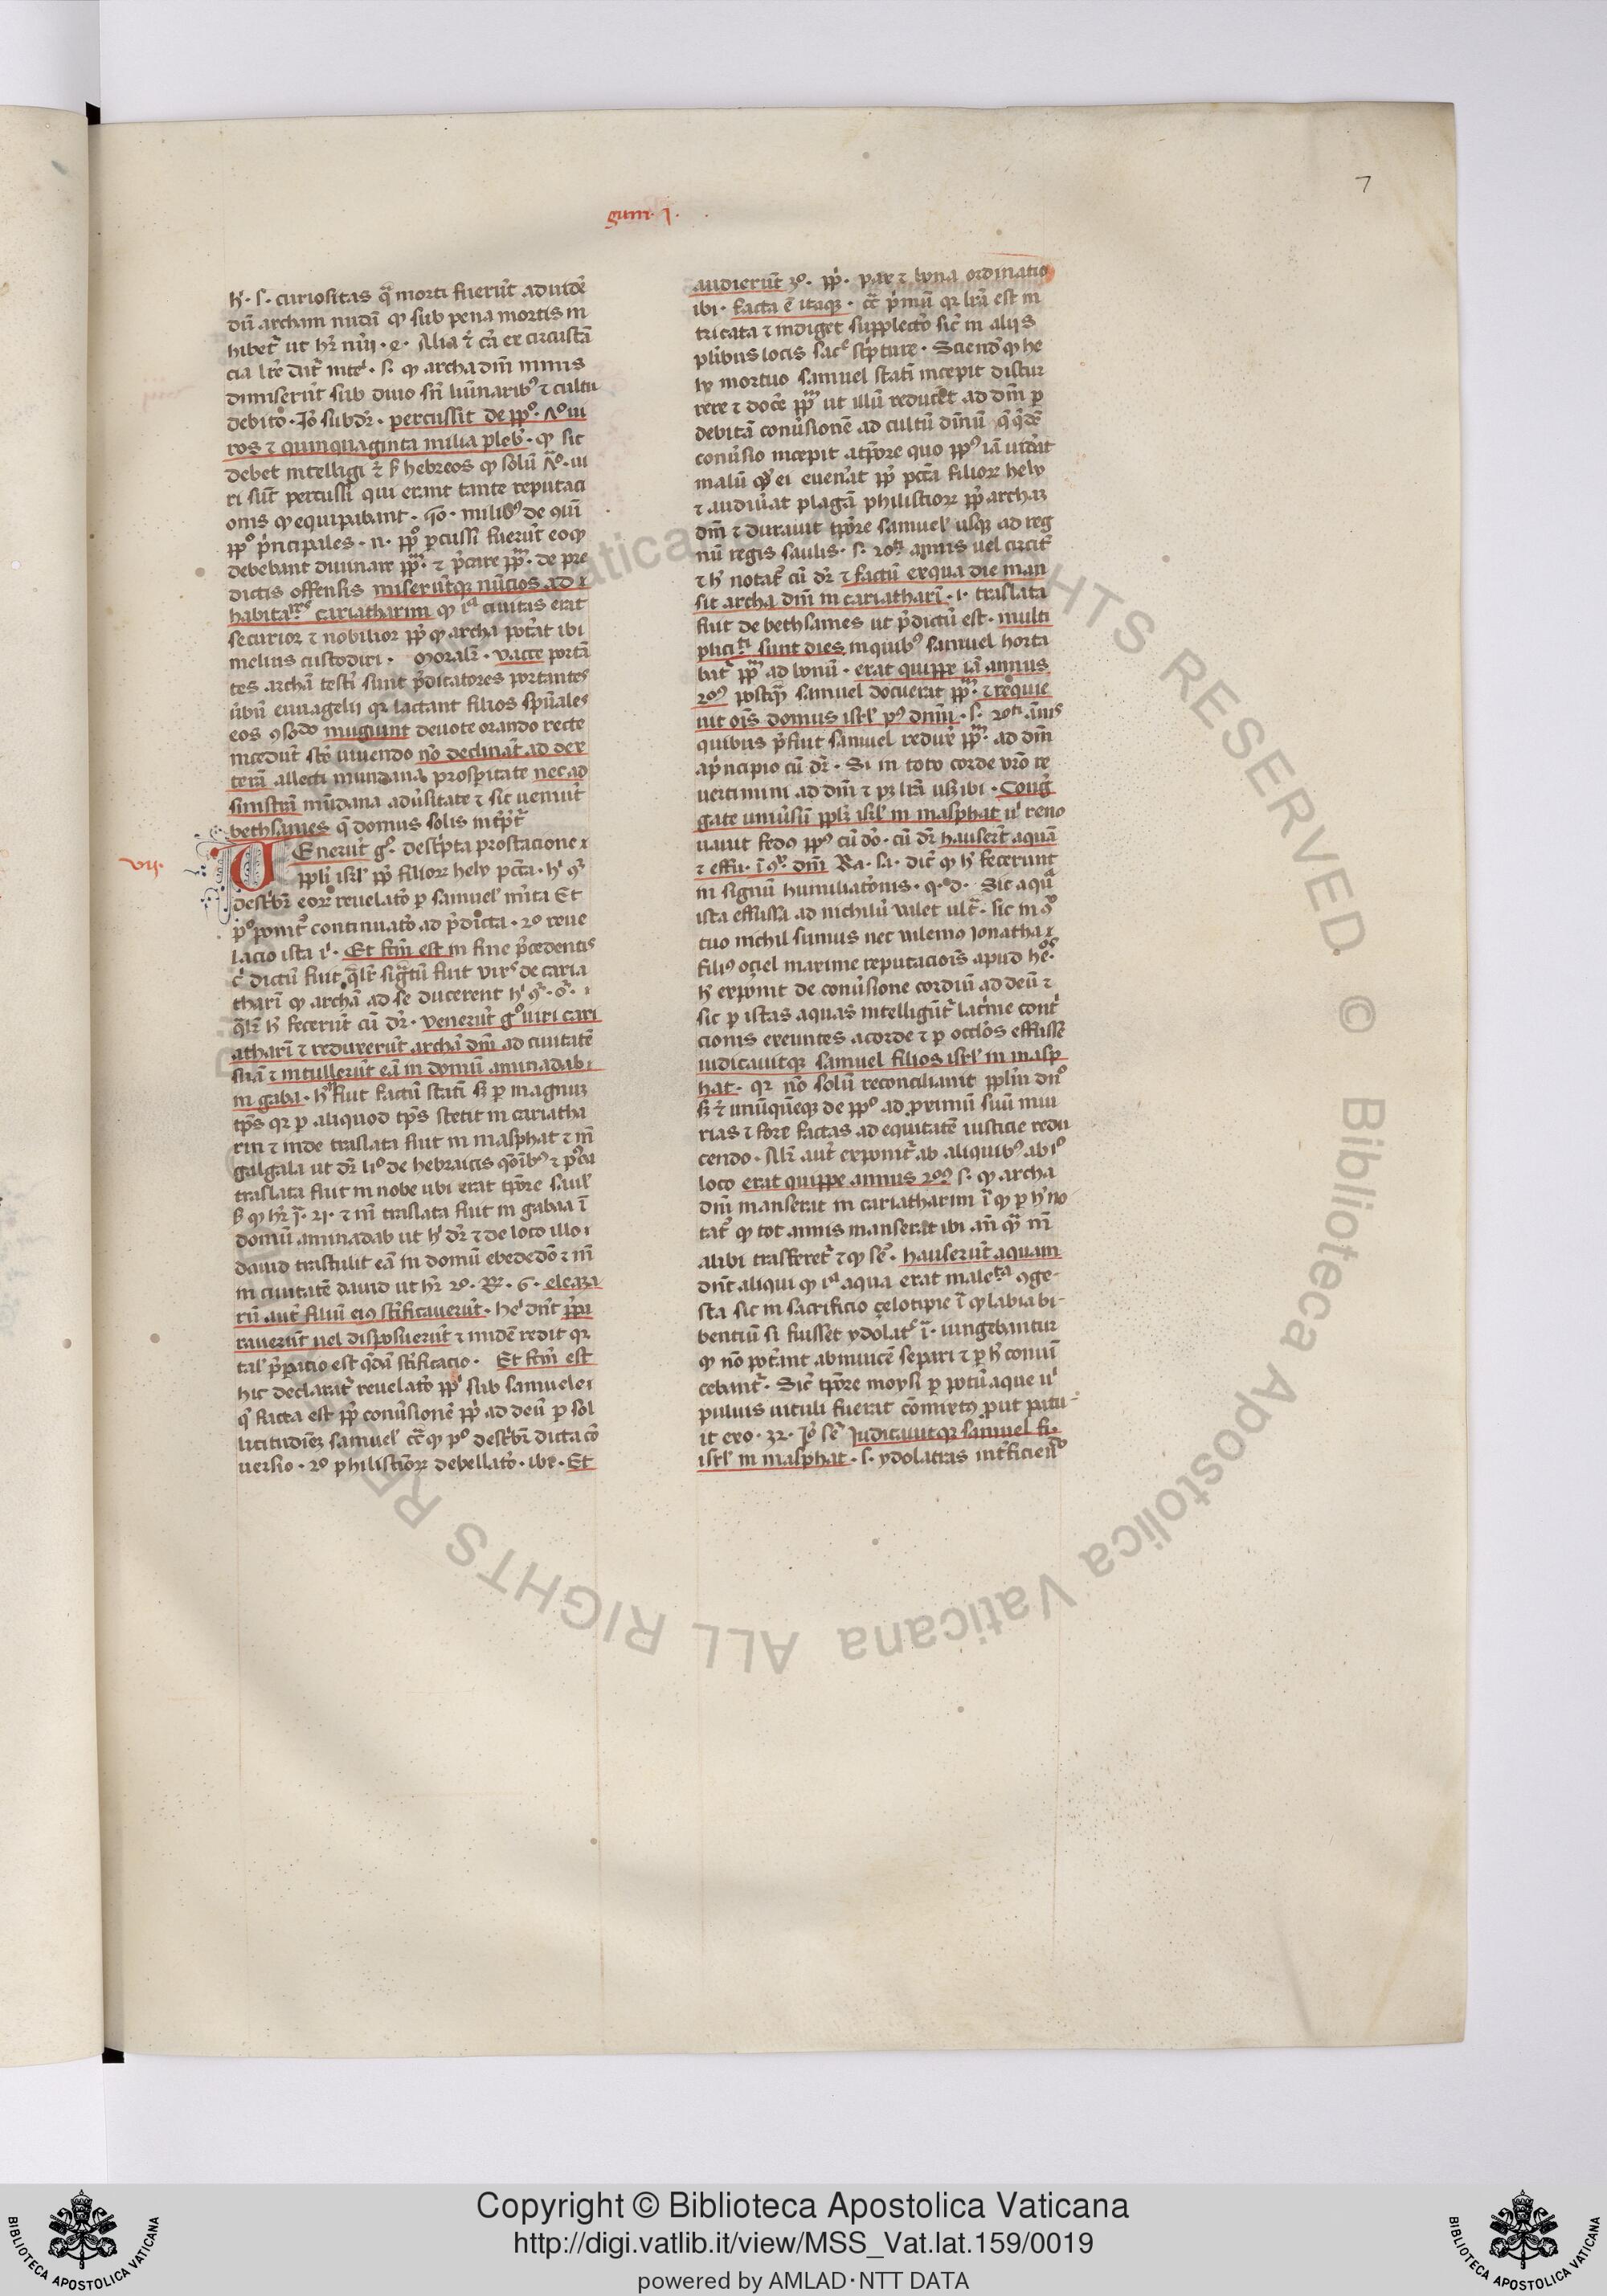 7
gum. I.
h'. s. curiositas q̄ morti fuerūt ad uidē
dū archam nudā qd sub pena mortis in
hibet᷑ ut hr̄ nūi. 4. Alia ē cā ex circūstā
cia lrē
dimiserūt sub diuo sn̄ luminarib9 ⁊ cultu
debito. Iō subdr̄. percussit de ppo.
ros ⁊ quinquaginta milia pleb'. qd sic
debet intelligi ē hebreos qd solū
ri sūt percussi qui erant tante reputaci
onis qd equipabant. milib9 de
ppo p'ncipales. n. ppo pcussi fuerūt eo qd
debebant diuinare ppm. ⁊ ppm. de pre
dictis offensis miserūtqꝫ nūcios ad
habitares cariatharim qd ia ciuitas erat
securior ⁊ nobilior pp̄ qd archa pot'at ibi
melius custodiri. Moralr̄. vacce portā
tes archā testi sunt p'dicatores portantes
ūbū euuāgelij qr lactant filios spūales
eos mugiunt deuote orando recte
incedūt uiuendo nō declināt ad dex
terā allecti mundana prosp'itate nec ad
sinistrā mūdana adūsitate ⁊ sic ueniūt
bethsames q̄ domus solis intp̄t᷑
vij.
Venerūt g°. desc'pta prostacione
ppli isrl' pp̄ filiorꝫ hely pctā. h'
desc'br̄ eorꝫ reuelat'o p samuel' Et
p°ponit᷑ continuat'o ad p'dicta. 2° reue
lacio ista Et fcm̄ est in fine p'cedentis
dictū fuit qlr̄ fuit viris de caria
tharī qd archā ad se ducerent h'
qlr̄ h' fecerūt cū dr̄. venerūt g° uiri cari
atharī ⁊ reduxerūt archā dm̄ ad ciuitatē
suā ⁊ intullerūt eā in domū aminadab
in gaba. h' fuit factū statī sꝫ p magnuꝫ
tp̄s qr p aliquod tp̄s stetit in cariatha
rin ⁊ inde traslata fuit in masphat ⁊ in
galgala ut dr̄ li° de hebraicis qōib9 ⁊
traslata fuit in nobe ubi erat tpr̄e saul'
qd hr̄ ī. 21. ⁊ traslata fuit in gabaa ī
domū aminadab ut h' dr̄ ⁊ de loco illo
dauid trastulit eā in domū ebededō ⁊
in ciuitatē dauid ut hr̄ 2°. R. 6. eleaza
rū aut filiū ei9 sc̄ificauerūt. he' dn̄t pp̄
rauerūt uel disposuerūt ⁊ in idē redit qr
tal' p'patio est qdā sc̄ificacio. Et fcm̄ est
hic declarat᷑ reuelat'o ppl'i sub samuele
q' facta est pp̄ conūsionē ppl'i ad deū p sol
licitudinē samuel' qd p° desc'br̄ dicta cō
uersio. 2° philistiorꝫ debellat'o. ibi. Et
audierūt 3°. pp̄. pax ⁊ bona ordinatio
ibi. facta ē itaqꝫ. cc̄ p'mū qr lrā est in
tricata ⁊ indiget supplect'o sic̄ in alijs
plibus locis sac' sc'pture. Sciend' qd he
ly mortuo samuel statī incepit discur
rere ⁊ doce' ppm ut illū reducet ad dm̄ p
debitā conūsionē ad cultū diuinū
conūsio incepit a tpr̄e quo pp9 iā uid'at
malū qd ei euen'at pp̄ pctā filiorꝫ hely
⁊ audiu'at plagā philistiorꝫ pp̄ archaꝫ
dm̄ ⁊ durauit tpr̄e samuel' usqꝫ ad reg
nū regis saulis. s. 20ti annis uel circit᷑
⁊ h' notat᷑ cū dr̄ ⁊ factū ex qua die man
sit archa dm̄ in cariatharī. i. traslata
fuit de bethsames ut p'dictū est. multi
plicita sunt dies in quib9 samuel horta
bat᷑ ppm ad bonū. erat quippe iā annus
20us postqꝫ samuel docuerat ppm. ⁊ requie
uit ois domus isrl' p9 dnm̄. s. 20ti ānis
quibus p'fuit samuel reduxit ppm. ad dm̄
a p'ncipio cū dr̄. Si in toto corde vrō re
uertimini ad dm̄ ⁊ pꝫ lrā usqꝫ ibi. Coug
gate uniūsū pplꝫ isrl' in masphat reno
uauit fed9 pp9 cū dō. cū dr̄ hauserūt aquā
⁊ effu. dm̄ Ra. sa. dic̄ qd h' fecerunt
in signū humiliat'onis. q. d. Sic aqua
ista effussa ad nichilū ualet ult'. sic in
tuo nichil sumus nec uilemo Ionatha
fili9 ociel maxime reputaciois apud heos.
h' exponit de conūsione cordiū ad deū ⁊
sic p istas aquas intelligūt᷑ lac'me cont'
cionis exeuntes a corde ⁊ p oclos effusse
iudicauitqꝫ samuel filios isrl' in masp
hat. qr nō solū reconciliauit pplm̄ dno
sꝫ ⁊ unūquēqꝫ de ppo ad proximū suū iniu
rias ⁊ fore factas ad equitatē iusticie redu
cendo. Alr̄ aut exponit᷑ ab aliquib9 ab i°
loco erat quippe annus 20us s. qd archa
dm̄ manserat in cariatharim ī qd p h' no
tat᷑ qd tot annis manserat ibi an̄ q
alibi trasferet᷑ ⁊ qd se'. hauserūt aquam
dn̄t aliqui qd ia aqua erat maleta 9ge-
sta sic in sacrificio çelotipie ī qd labia bi-
bentiū si fuisset ydolat' ī. iungebantur
qd nō pot'ant ab inuicē separi ⁊ p h' conuī
cebant᷑. Sic̄ tpr̄e moysi p potū aque
puluis uituli fuerat cōmixt9 put patu-
it exo. 32. Iō se' Iudicauitqꝫ samuel fi.
isrl' in masphat. s. ydolatras int'ficiend°
Copyright © Biblioteca Apostolica Vaticana
http://digi.vatlib.it/view/MSS_Vat.lat.159/0019
powered by AMLAD·NTT DATA
BIBLIOTECA APOSTOLICA VATICANA
BIBLIOTECA APOSTOLICA VATICANA
ALL RIGHTS RESERVED. © Biblioteca Apostolica Vaticana